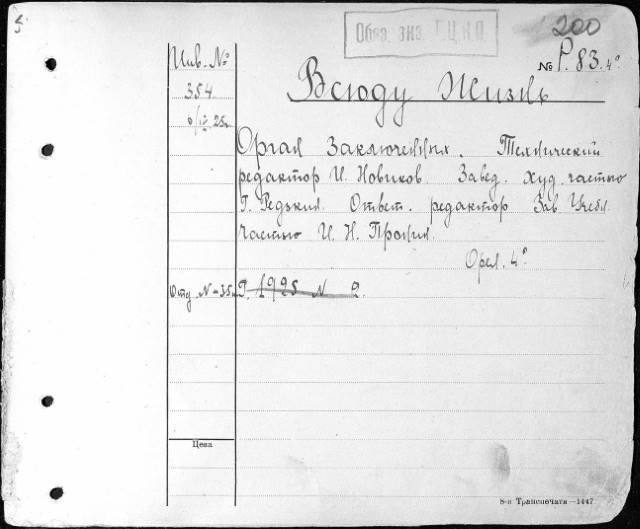 200
Обяз. экз. Г.Ц.К.П.
Инв. №
№ Р. 83. 4°
354
Всюду Жизнь
Орган Заключенных. Технический
редактор И. Новиков. Завед. худ. частью
Г. Редькин. Ответ. редактор Зав. Учебн.
Частью И. Н. Пронин.
Орел. 4°
Отд. № 35. Г. 1925 N 2.
Цена
8-я Транспечати—1447